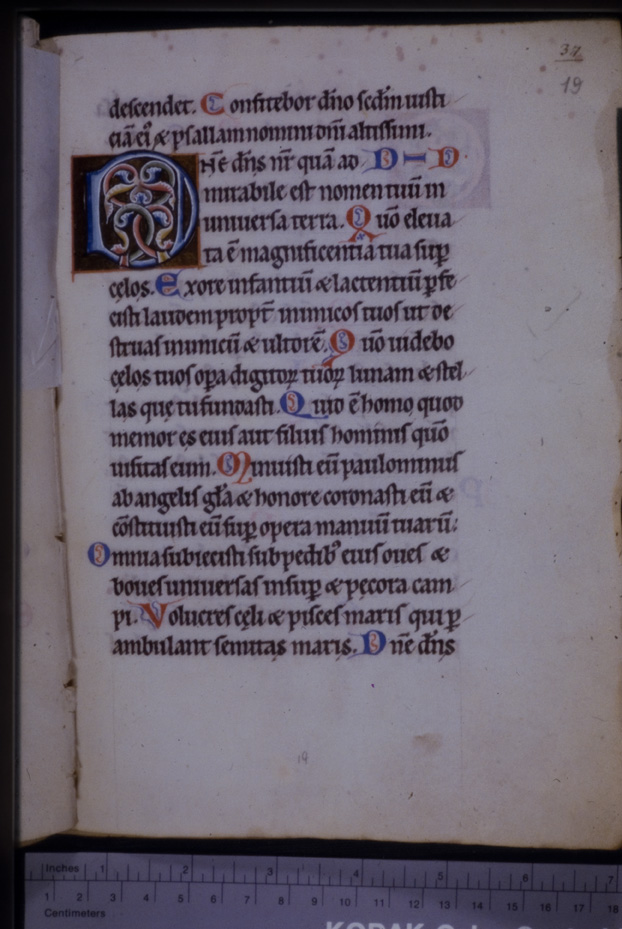 37
19
descendet. Confitebor dño scd̃m iusti
ciã ei᷒ & psallam nomini dñi altissimi.
DNẽ dñs nr̃ quã ad D I D
mirabile est nomen tuũ in
uniuersa terra. Qũo eleua
ta ẽ magnificentia tua suꝑ
cęlos. Ex ore infantiũ & lactentiũ ꝑfe
cisti laudem propt̃ inimicos tuos ut de
struas inimicũ & ultorẽ. Qũo uidebo
cęlos tuos oꝑa digitoꝝ tuoꝝ lunam & stel
las quę tu fundasti. Quid ẽ homo quod
memor es eius aut filius hominis qũo
uisitas eum. Minuisti eũ paulominus
ab angelis gl̃a & honore coronasti eũ &
cõstituisti eũ suꝑ opera manuũ tuarũ.
Omnia subiecisti sub pedib᷒ eius oues &
boues uniuersas insuꝑ & pecora cam
pi. Volucres cęli & pisces maris qui ꝑ
ambulant semitas maris. Dñe dñs
19
Inches 1 2 3 4 5 6 7
1 2 3 4 5 6 7 8 9 10 11 12 13 14 15 16 17 18
Centimeters
KODAK